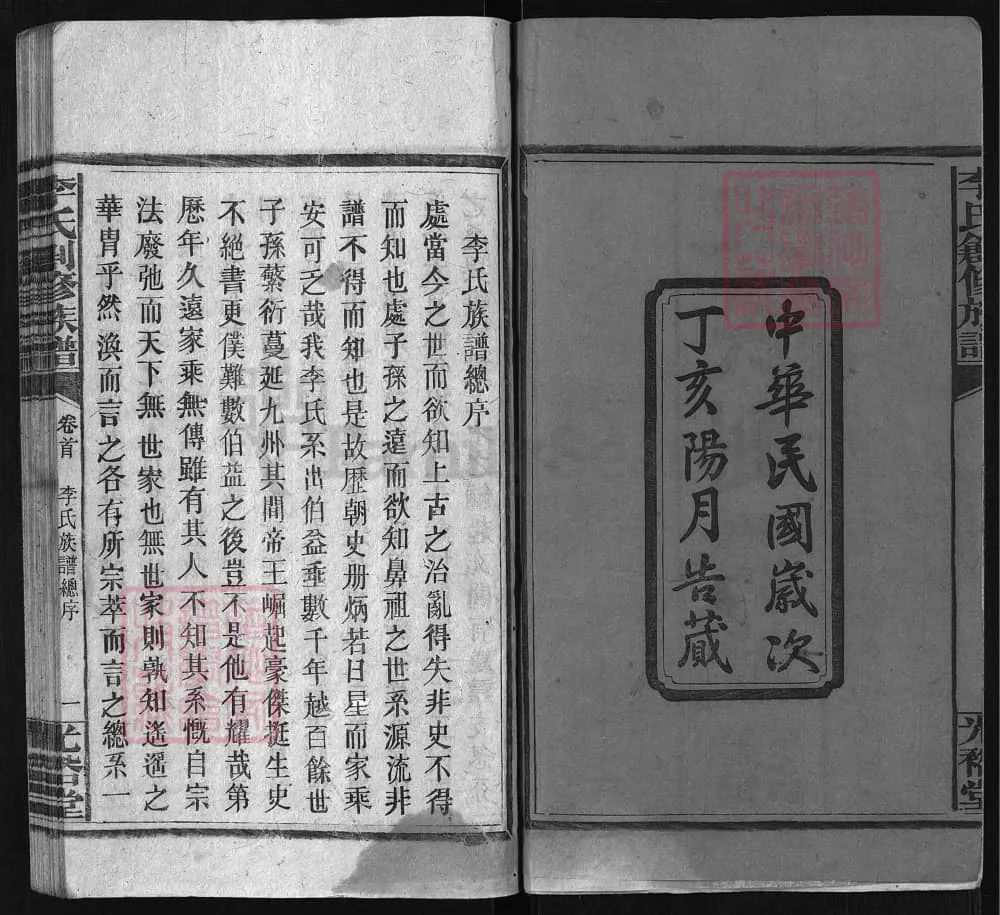 中華民國歲次
丁亥陽月告蕆
李氏創修族譜
李氏族譜總序
處當今之世而欲知上古之治亂得失非史不得
而知也處子孫之遠而欲知鼻祖之世系源流非
譜不得而知也是故歷朝史册炳若日星而家乘
安可乏哉我李氏系出伯益垂數千年越百餘世
子孫繁衍蔓延九州其間帝王崛起豪傑挺生史
不絕書更僕難數伯益之後豈不是他有耀哉第
歷年久遠家乘無傳雖有其人不知其系慨自宗
法廢弛而天下無世家也無世家則孰知遙遙之
華胄乎然渙而言之各有所宗萃而言之總系一
李氏創修族譜
卷首
李氏族譜總序
一